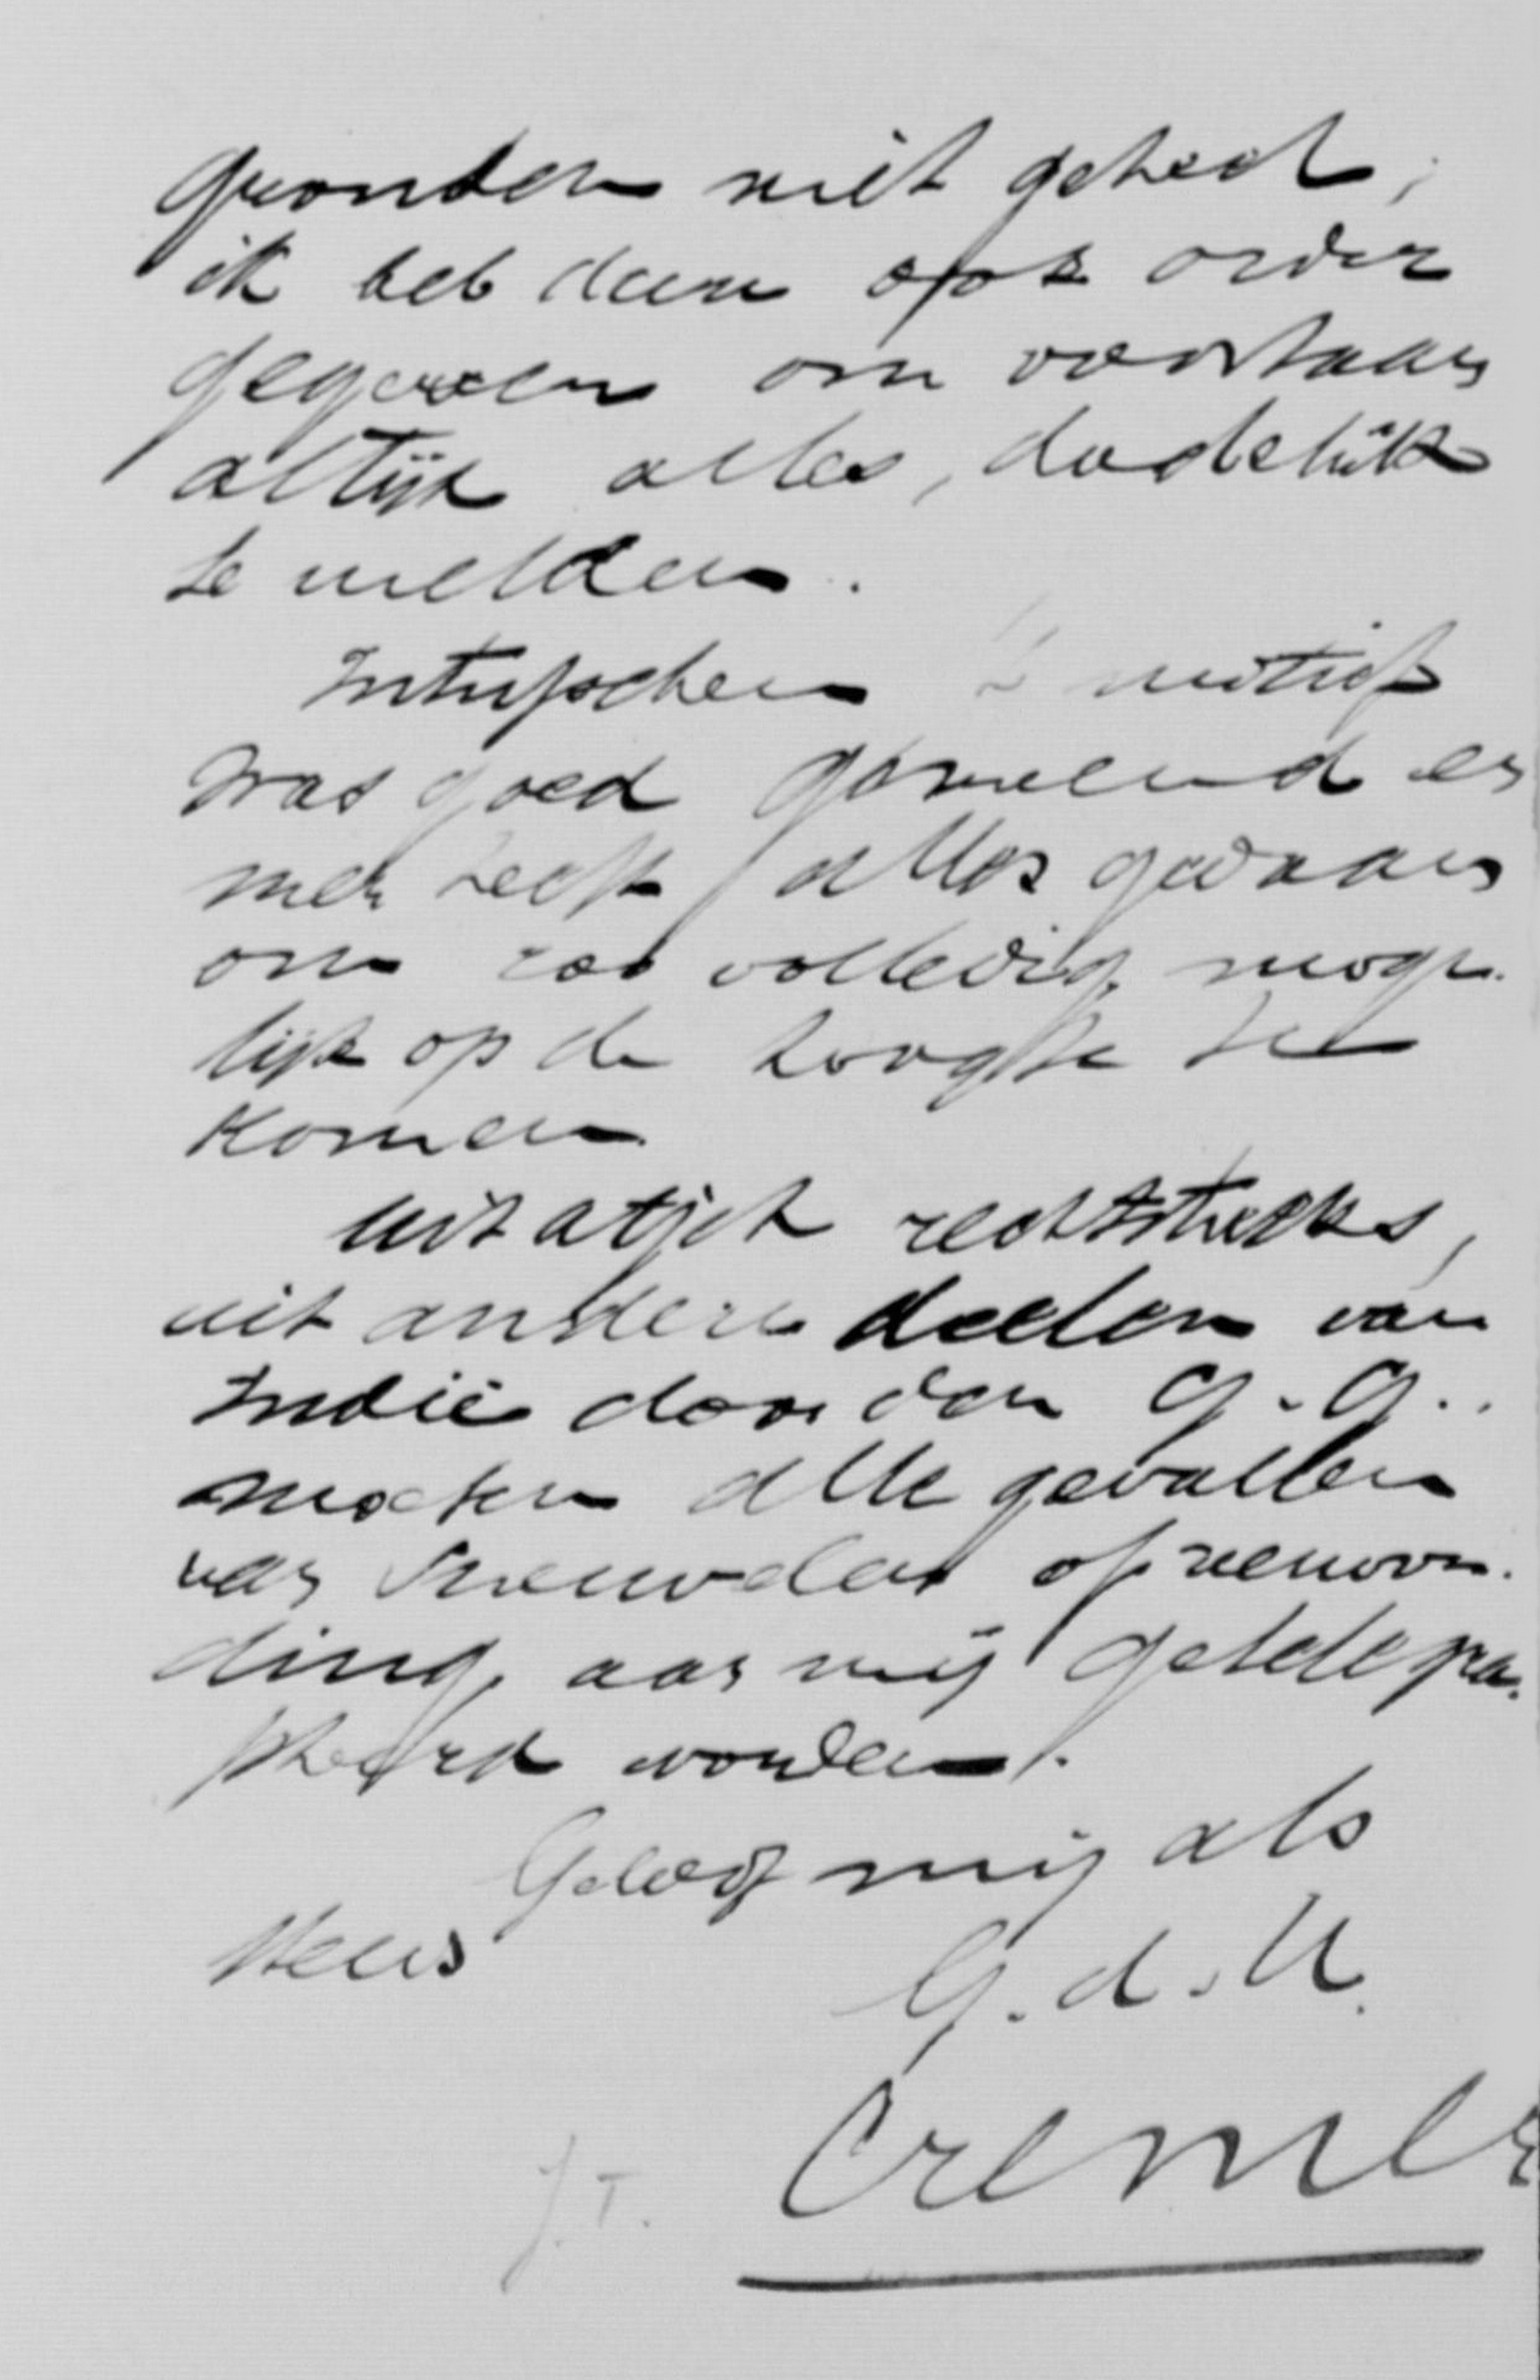 gronden niet geheel;
ik heb dan ook order
gegeven om voortaan
altijd alles, dadelijk
te melden.
Intusschen motief
was goed gemeend en
men heeft alles gedaan
om zoo volledig moge-
lijk op de hoogte te
komen
uit Atjeh rechtstreeks,
uit andere deelen van
Indië door den G.G..
moeten alle gevallen
van sneuvelen of verwon-
ding aan mij getelegra-
pheerd worden.
Geloof mij als
steeds
G.d.U.
Cremer
J.T.